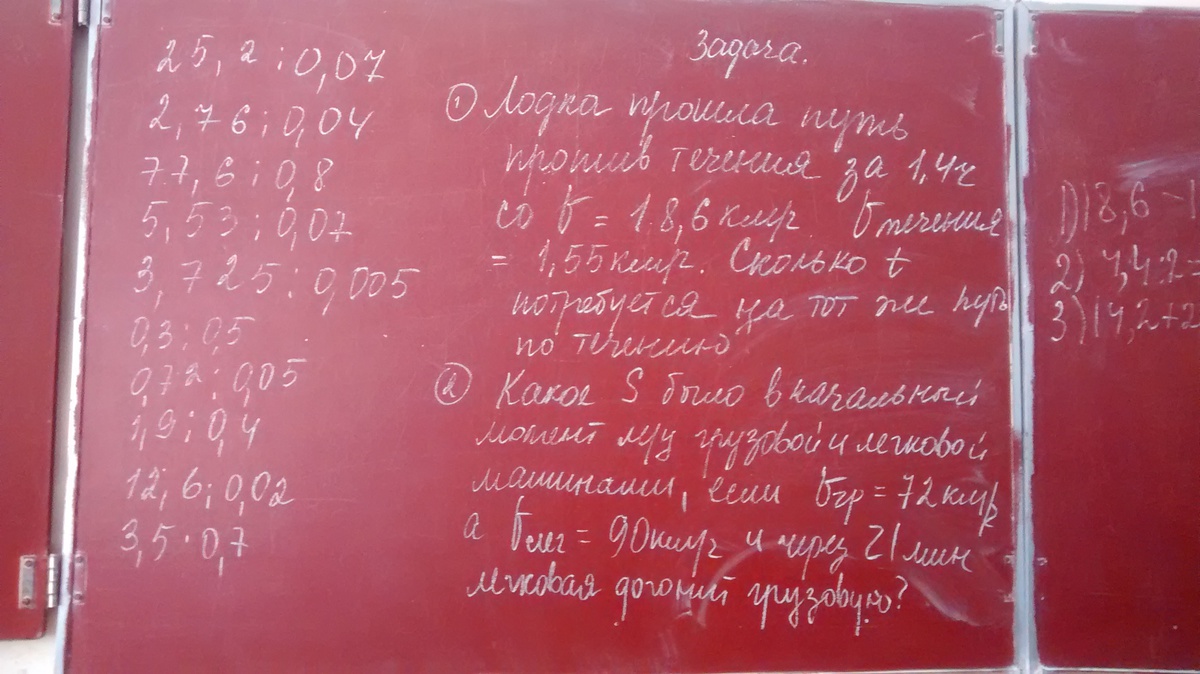 25,2:0,07
2,76:0,04
77,6:0,8
5,53:0,07
3,725:0,005
0,3:0,5
0,72:0,05
1,9:0,4
12,6:0,02
3,5·0,7
Задача.
① Лодка прошла путь
против течения за 1,4ч
со v = 18,6 км/ч. v течения
= 1,55 км/ч. Сколько t
потребуется на тот же путь
по течению
② Какое S было в начальный
момент м/у грузовой и легковой
машинами, если vгр = 72 км/ч,
а vлег = 90 км/ч и через 21 мин
легковая догонит грузовую?
1) 18,6 - 1
2) 4,4:2 =
3) 14,2+2